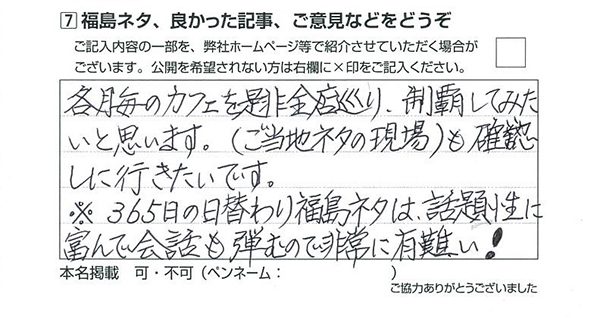 7 福島ネタ、良かった記事、ご意見などをどうぞ
ご記入内容の一部を、弊社ホームページ等で紹介させていただく場合が
ございます。公開を希望されない方は右欄に×印をご記入ください。
各月毎のカフェを是非全店巡り、制覇してみた
いと思います。(ご当地ネタの現場)も確認
しに行きたいです。
※365日の日替わり福島ネタは、話題性に
富んで会話も弾むので非常に有難い!
本名掲載 可・不可(ペンネーム: )
ご協力ありがとうございました